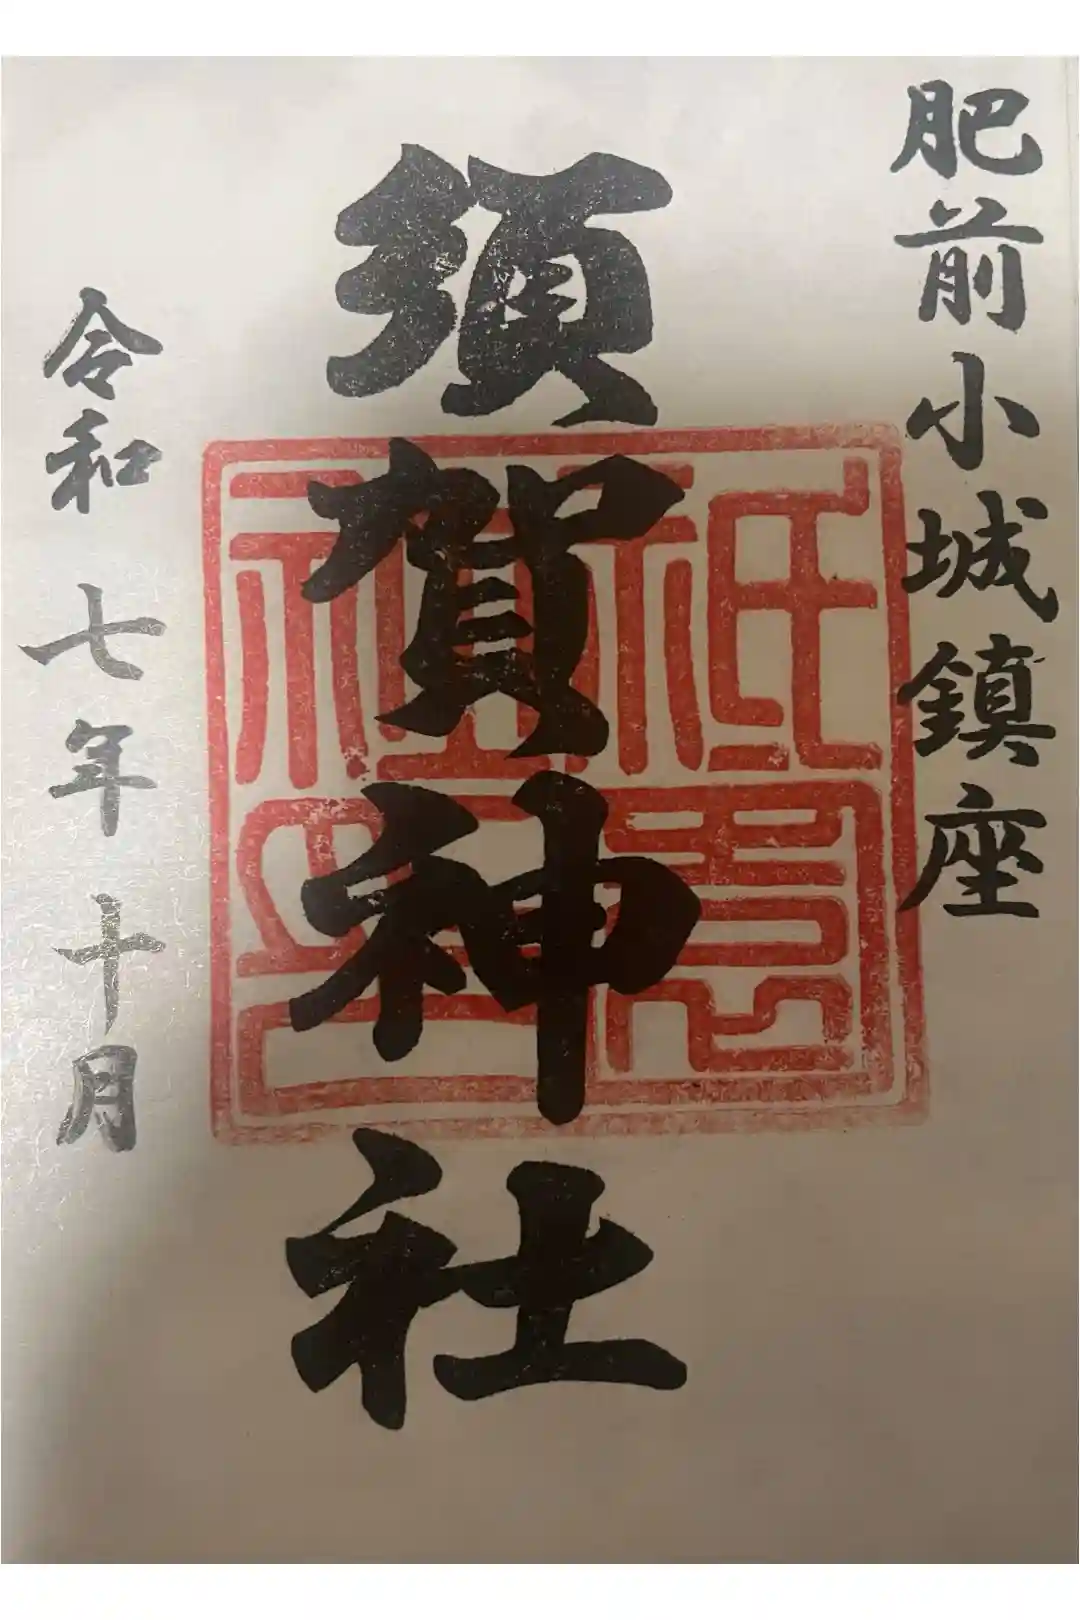 肥前小城鎮座
須賀神社
令和七年十月